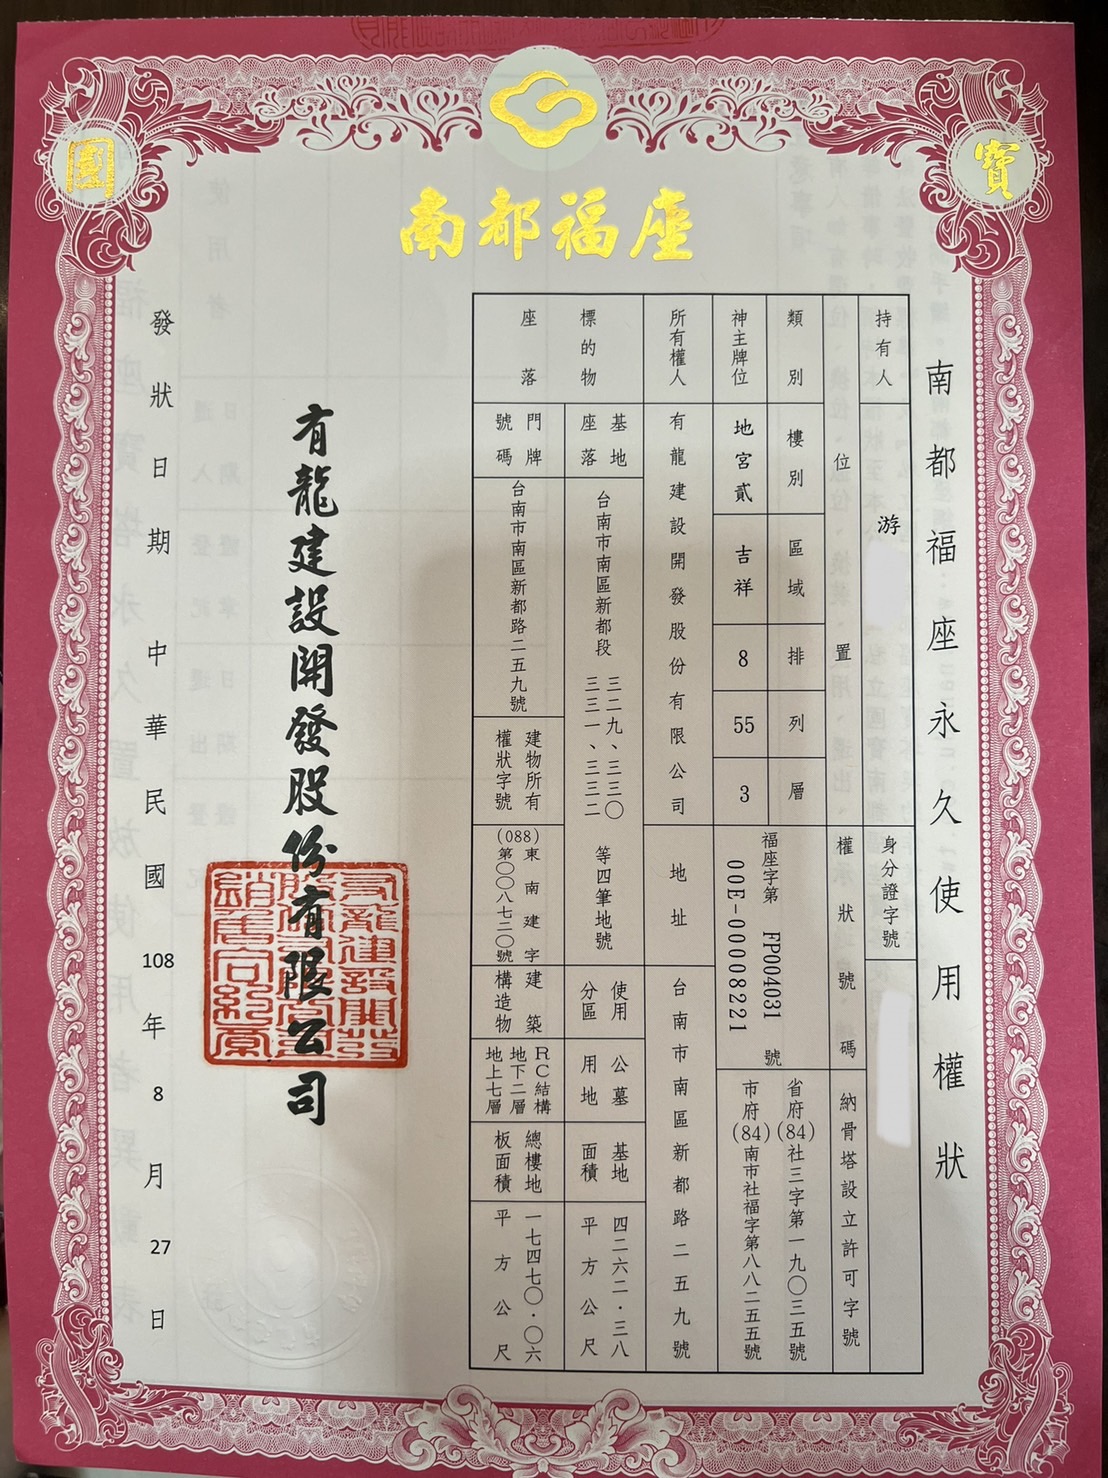 國寶
南都福座
南都福座永久使用權狀
持有人
游
身分證字號
位置
權狀號碼
納骨塔設立許可字號
類別
樓別
區域
排
列
層
福座字第 FP004031 號
00E-00008221
省府(84)社三字第一九〇三五號
市府(84)南市社福字第八八二五五號
神主牌位
地宮貳
吉祥
8
55
3
所有權人
有龍建設開發股份有限公司
地址
台南市南區新都路二五九號
標的物
座落
基地座落
台南市南區新都段
三二九、三三〇
三三一、三三二
等四筆地號
使用分區
公墓用地
基地面積
四二六二.三八
平方公尺
門牌號碼
台南市南區新都路二五九號
建物所有權狀字號
(088)東南建字
第〇〇八七二〇號
建築構造物
RC結構
地下二層
地上七層
總樓地板面積
一七四七〇.〇六
平方公尺
有龍建設開發股份有限公司
發狀日期 中華民國108年8月27日